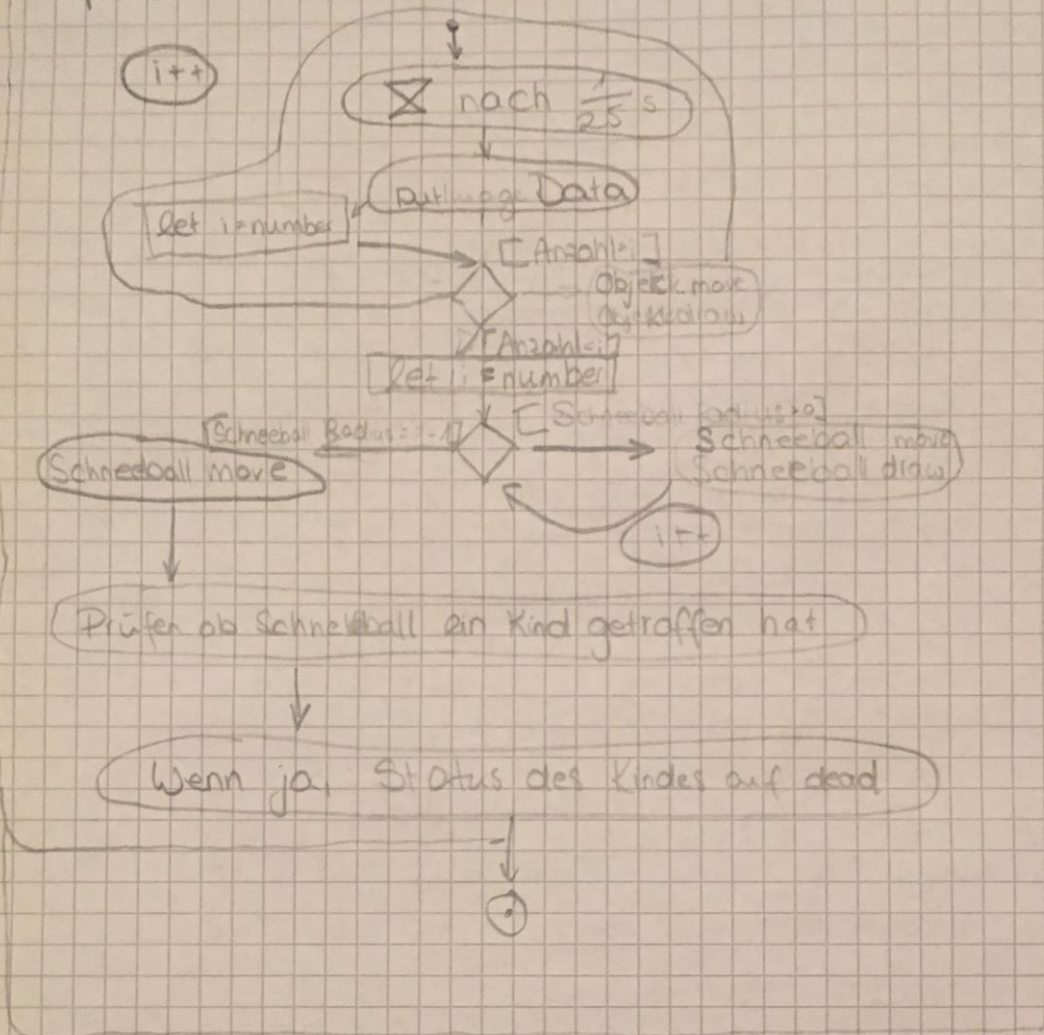 i++
nach 1/25 s
putImage Data
let i=number
[Anzahl>i]
Objekt move
Objekt draw
[Anzahl<i]
let i = number
[Schneeball Radius>0]
[Schneeball Radius = -1]
Schneeball move
Schneeball move
Schneeball draw
i++
Prüfen ob Schneeball ein Kind getroffen hat
Wenn ja, Status des Kindes auf dead